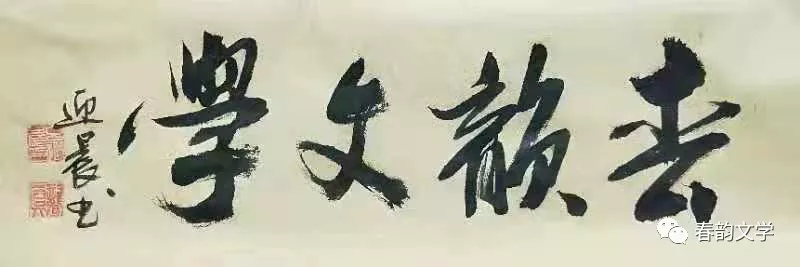 春韵文學
迎晨书
春韵文学